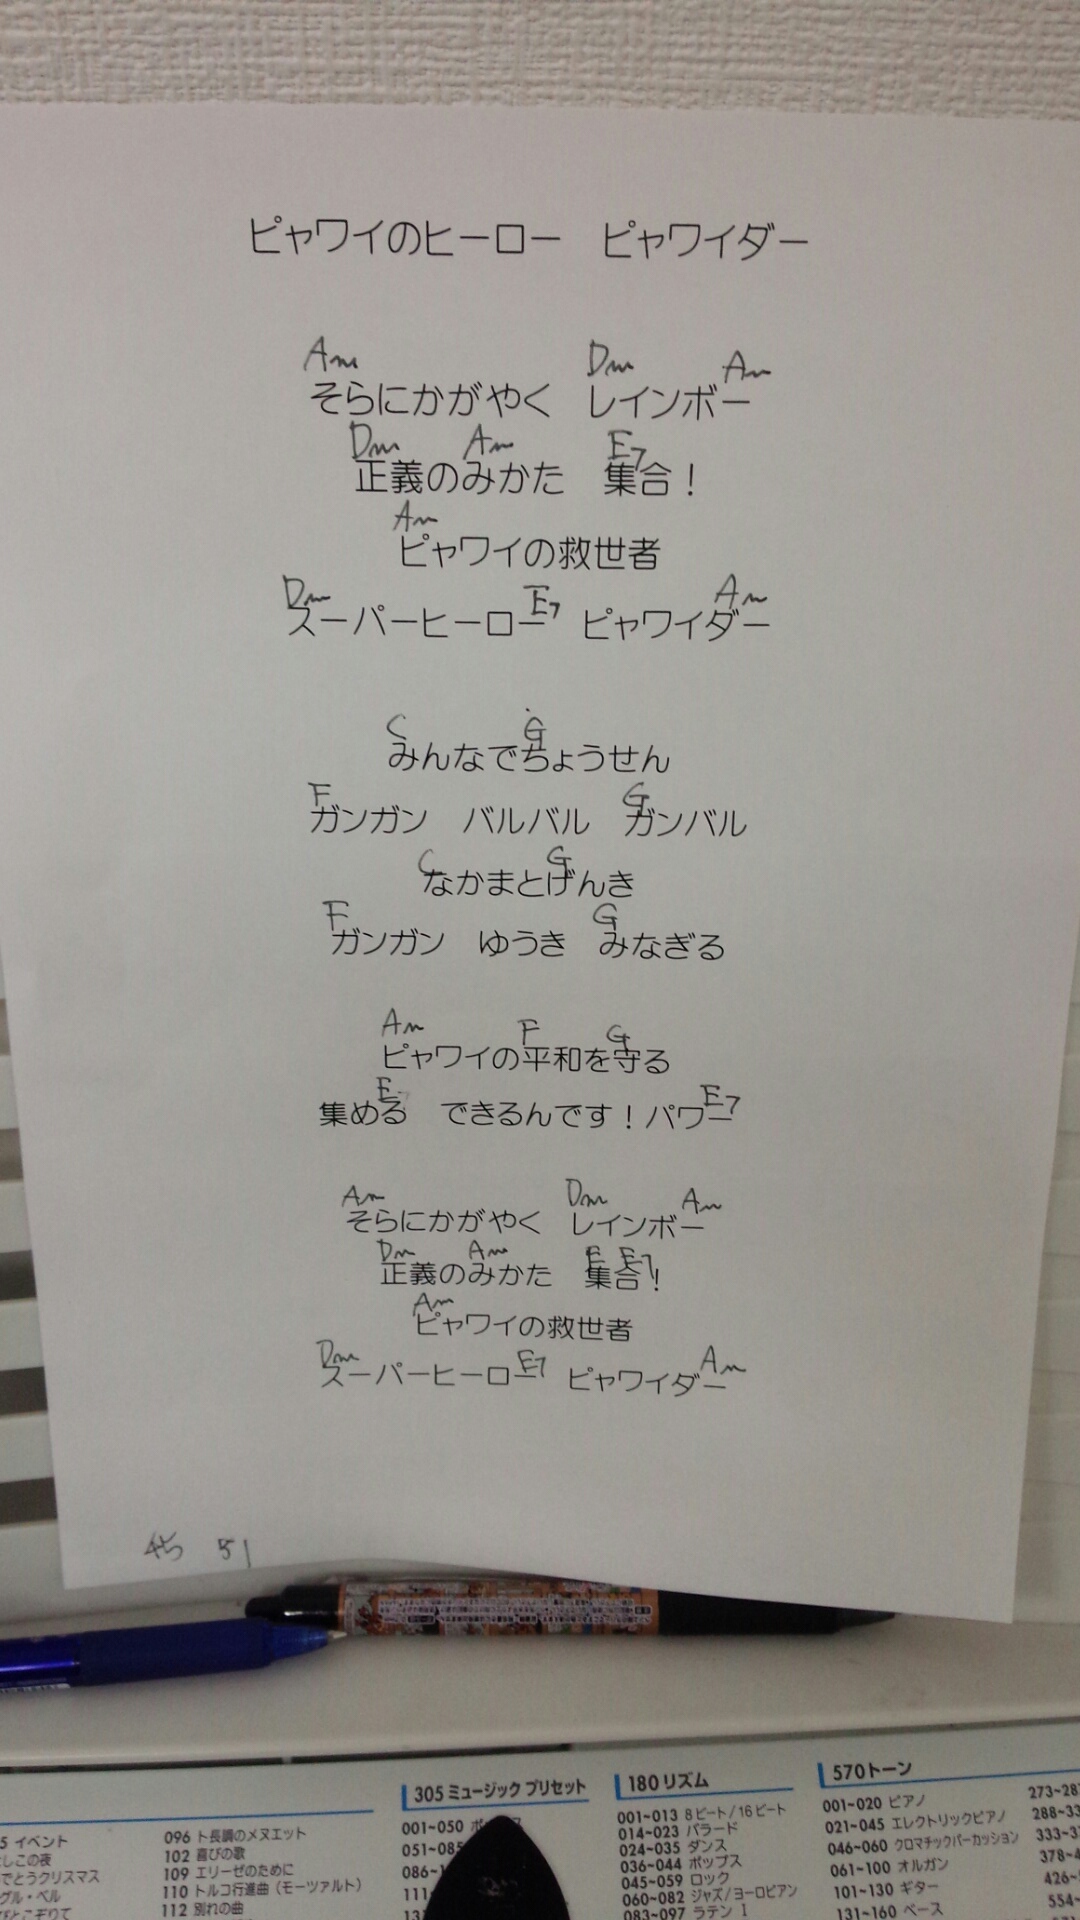 ピャワイのヒーロー　ピャワイダー
Am Dm Am
そらにかがやく　レインボー
Dm Am E7
正義のみかた　集合！
Am
ピャワイの救世者
Dm E7 Am
スーパーヒーロー　ピャワイダー
C G
みんなでちょうせん
F G
ガンガン　バルバル　ガンバル
C G
なかまとげんき
F G
ガンガン　ゆうき　みなぎる
Am F G
ピャワイの平和を守る
E E7
集める　できるんです！パワー
Am Dm Am
そらにかがやく　レインボー
Dm Am E E7
正義のみかた　集合！
Am
ピャワイの救世者
Dm E7 Am
スーパーヒーロー　ピャワイダー
45 51
305 ミュージック プリセット
180 リズム
570 トーン
5 イベント
しこの夜
でとうクリスマス
グル・ベル
びとこぞりて
096 ト長調のメヌエット
102 喜びの歌
109 エリーゼのために
110 トルコ行進曲（モーツァルト）
112 別れの曲
001~050
051~085
086~
111
001~013 8ビート/16ビート
014~023 バラード
024~035 ダンス
036~044 ポップス
045~059 ロック
060~082 ジャズ/ヨーロピアン
083~097 ラテン I
001~020 ピアノ
021~045 エレクトリックピアノ
046~060 クロマチックパーカッション
061~100 オルガン
101~130 ギター
131~160 ベース
273~287
288~33
333~37
378~4
426~
554~